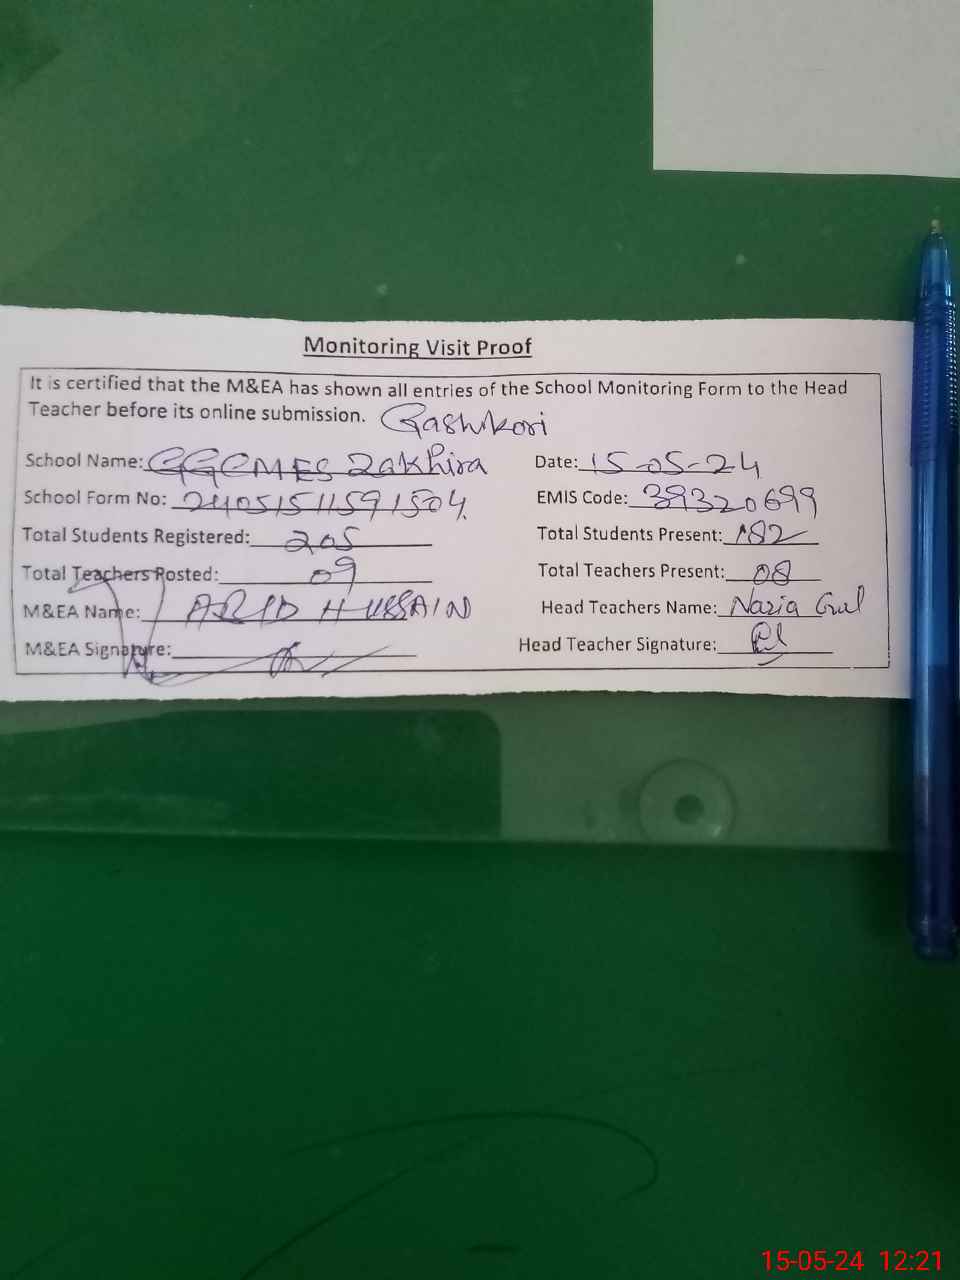 Monitoring Visit Proof
It is certified that the M&EA has shown all entries of the School Monitoring Form to the Head
Teacher before its online submission. Gashkori
School Name: GGCMES Zakhira Date: 15-05-24
School Form No: 24051511591504 EMIS Code: 39320699
Total Students Registered: 205 Total Students Present: 182
Total Teachers Posted: 09 Total Teachers Present: 08
M&EA Name: HUSSAIN Head Teachers Name: Nazia Gul
M&EA Signature: Head Teacher Signature:
15-05-24 12:21